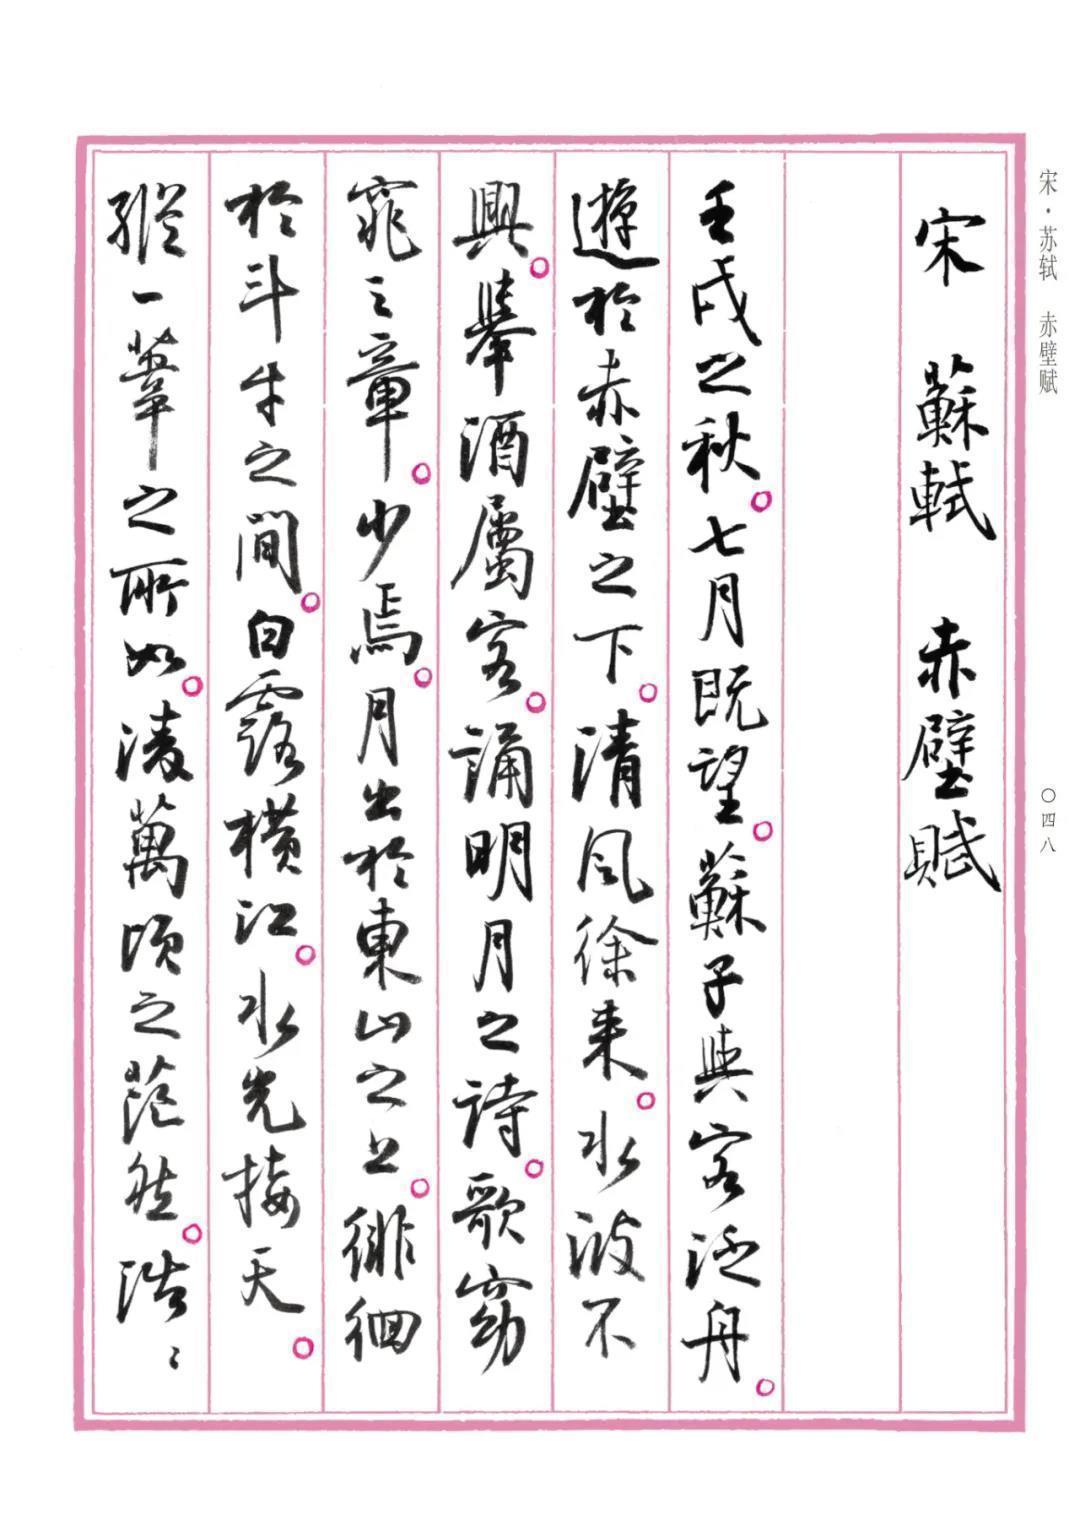 宋 蘇軾 赤壁賦
壬戌之秋。七月既望。蘇子與客泛舟。
遊於赤壁之下。清風徐来。水波不
興。舉酒屬客。誦明月之詩。歌窈
窕之章。少焉。月出於東山之上。徘徊
於斗牛之間。白露橫江。水光接天。
縱一葦之所如。凌萬頃之茫然。浩〻
宋·苏轼 赤壁赋
〇四八